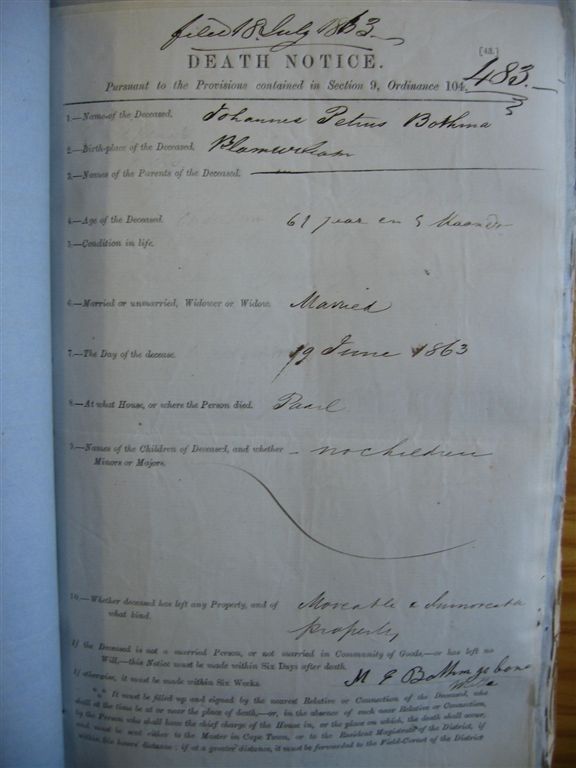 filed 18 July 1863
[48.]
DEATH NOTICE.
483.
Pursuant to the Provisions contained in Section 9, Ordinance 104.
1.—Name of the Deceased. Johannes Petrus Bothma
2.—Birth-place of the Deceased.
3.—Names of the Parents of the Deceased.
4.—Age of the Deceased. 61 year en 5 Maanden
5.—Condition in life.
6.—Married or unmarried, Widower or Widow. Married
7.—The Day of the decease. 19 June 1863
8.—At what House, or where the Person died. Paarl
9.—Names of the Children of Deceased, and whether – no children
Minors or Majors.
10.—Whether deceased has left any Property, and of Moveable &
what kind. property
If the Deceased is not a married Person, or not married in Community of Goods,—or has left no
Will,—this Notice must be made within Six Days after death.
If otherwise, it must be made within Six Weeks. M E Bothma
*** It must be filled up and signed by the nearest Relative or Connection of the Deceased, who
shall at the time be at or near the place of death,—or, in the absence of such near Relative or Connection,
by the Person who shall have the chief charge of the House in, or the place on which, the death shall occur,
and must be sent either to the Master in Cape Town, or to the Resident Magistrate of the District, if
within six hours' distance: if at a greater distance, it must be forwarded to the Field-Cornet of the District